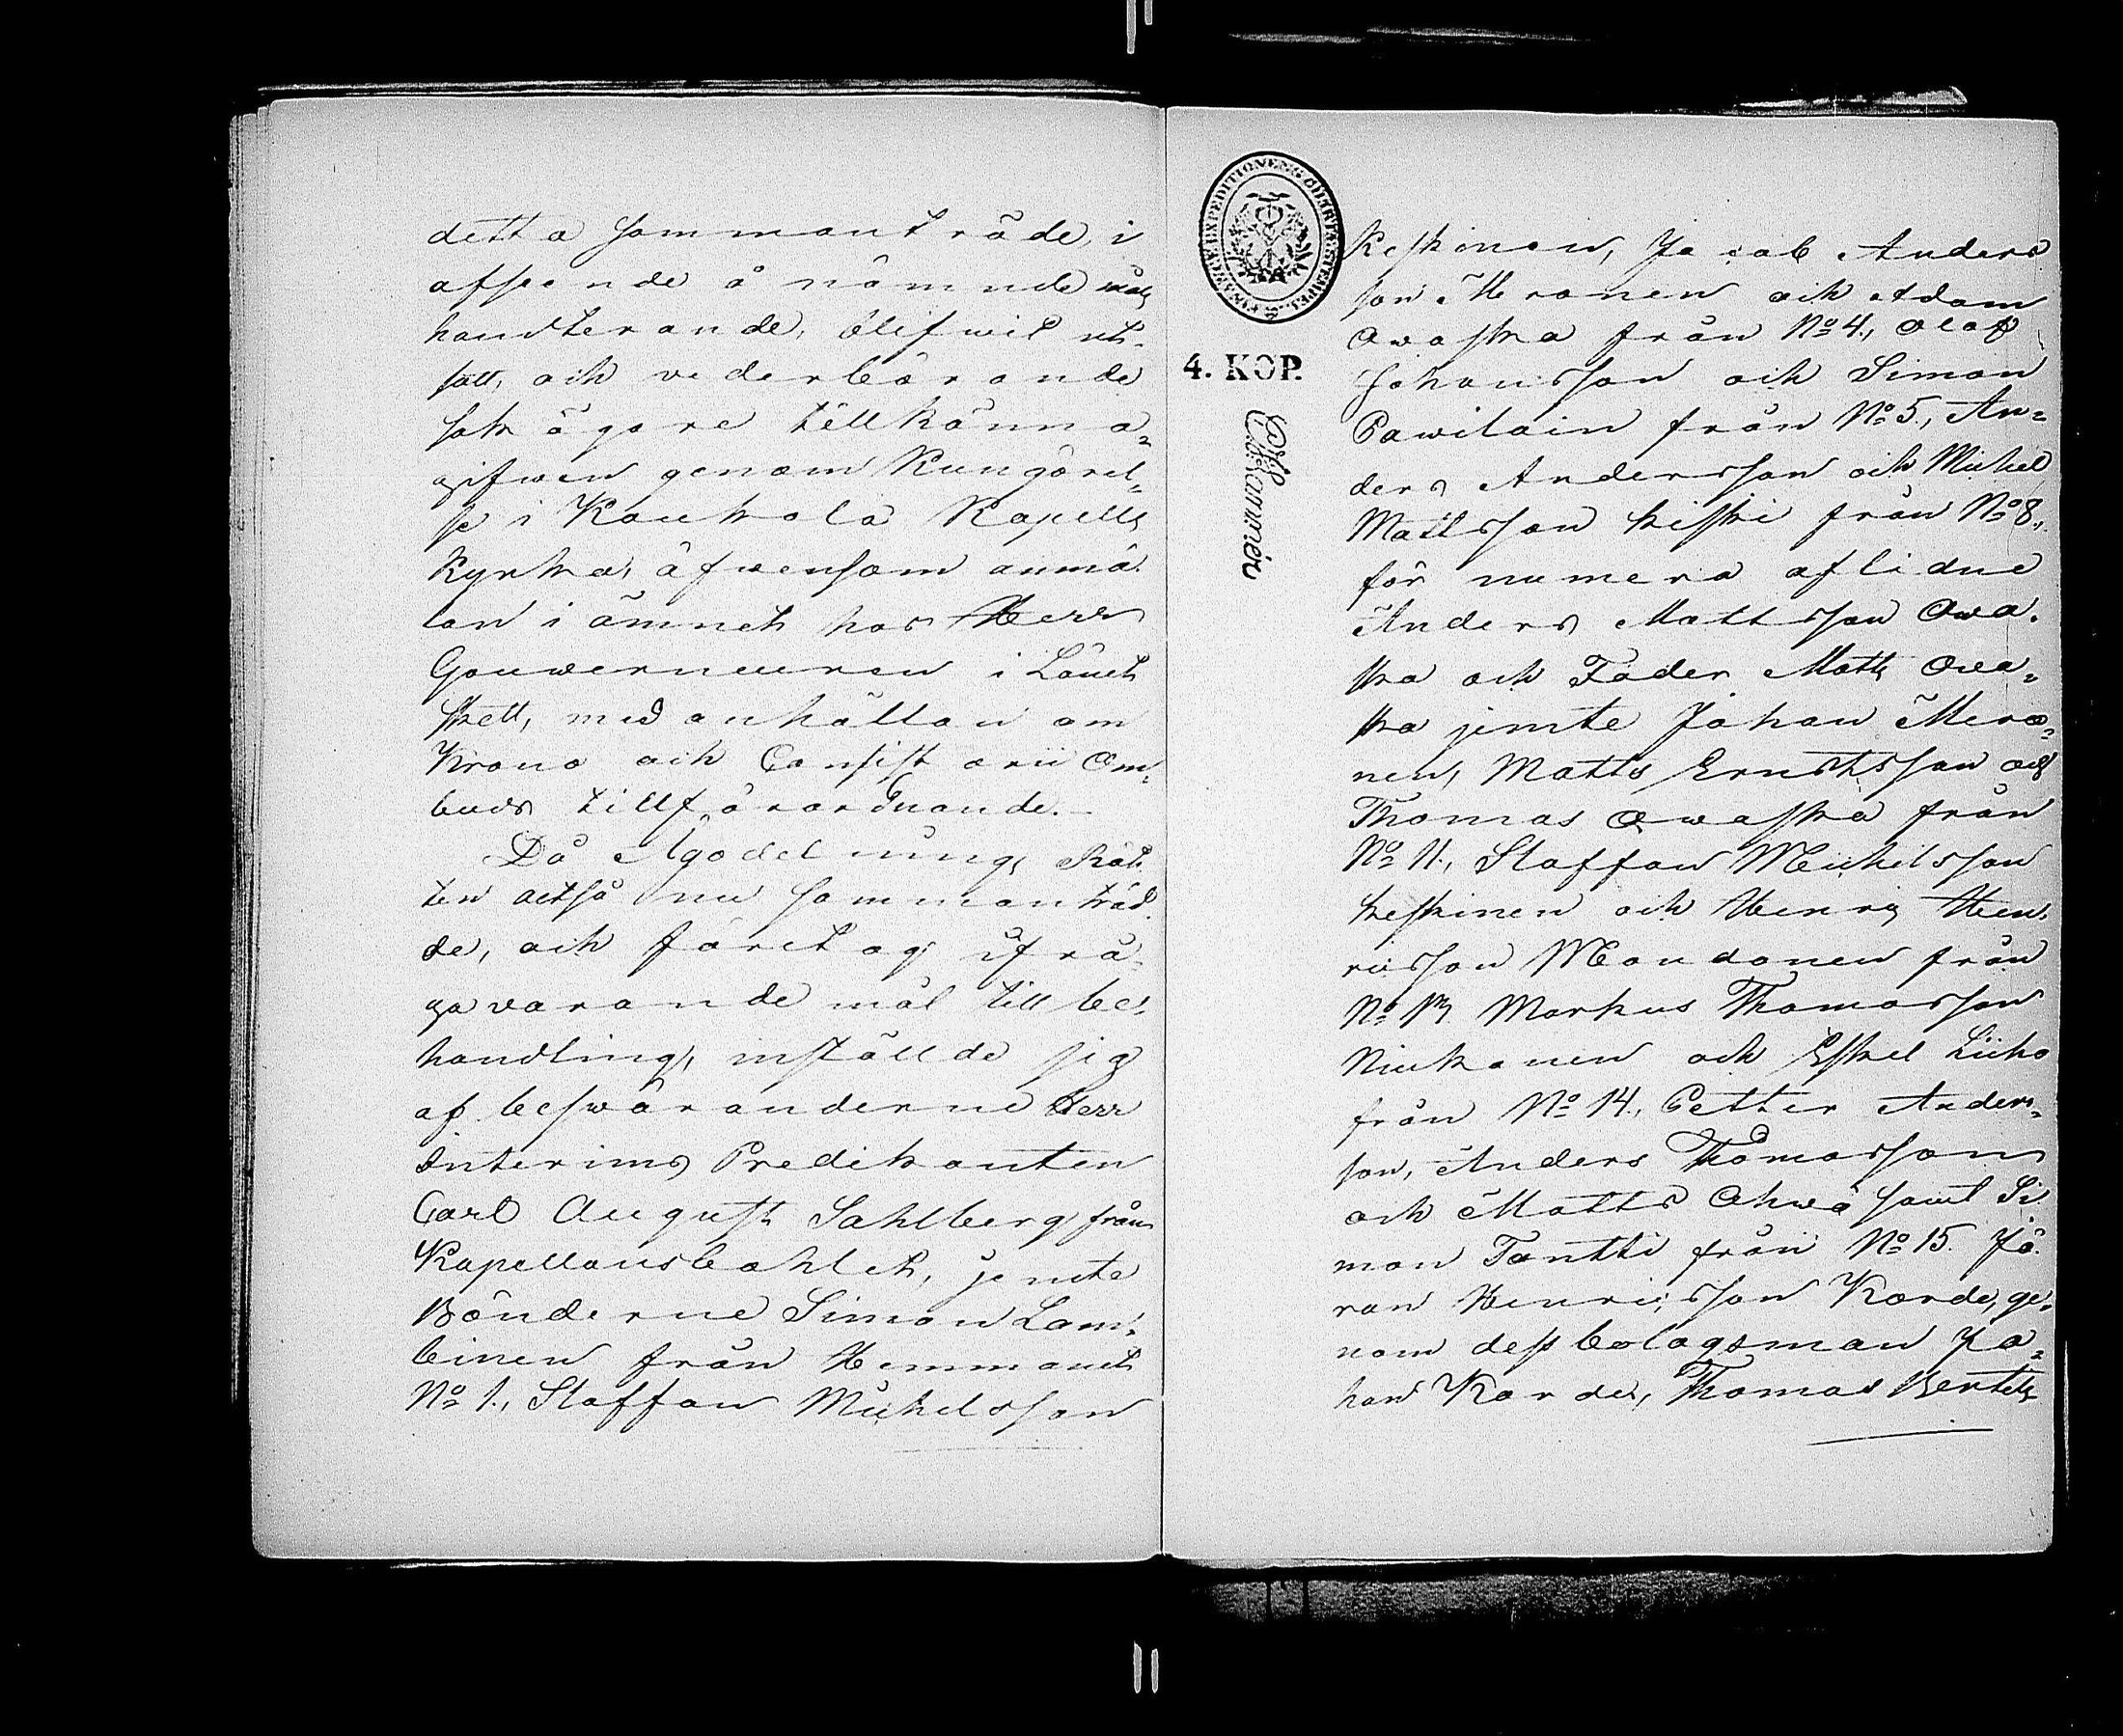 detta sammanträde, i
afseende å nämnde måls
handterande, blifwit ut-
satt, och vederbörande
sakägare tillkänna-
gifwen genom Kungörel-
se i Kaukola Kapells
Kyrka, äfwensom anmä-
lan i ämnet hos Herr
Gouverneuren i Länet
skett, med anhållan om
Krono och Consistorii Om-
buds tillförordnande.-
Då Ägodelnings Rät-
ten altså nu sammanträd-
de, och företog ifrå-
gavarande mål till be-
handling, inställde sig
af beswäranderne Herr
Interims Predikanten
Carl August Sahlberg från
Kapellansbohlet, jemte
Bönderne Simon Lam-
beinen från Hemmanet
No 1., Staffan Michelsson
FINANCE EXPEDITIONENS CHARTÆ STEMPEL
4. KOP.
Keskinen, Jacob Anders
son Meronen och Adam
Owaska från No 4., Olof
Johansson och Simon
Pawilain från No 5., An-
ders Andersson och Michel
Mattsson Kiski från No 8.,
för numera aflidne
Anders Mattsson Owa-
ska och Fader Matts Owa-
ska jemte Johan Mero-
nen, Matts Ernstsson och
Thomas Owaska från
No 11., Staffan Michelsson
Keskinen och Henric Hen-
ricsson Mondonen från
No 13. Markus Thomasson
Niukanen och Eskel Liiho
från No 14., Petter Anders-
son, Anders Thomasson
och Matts Ahwo samt Si-
mon Tontti från No 15. Jö-
ran Henricsson Korde, ge-
nom dess bolagsman Jo-
han Korde, Thomas Bertels